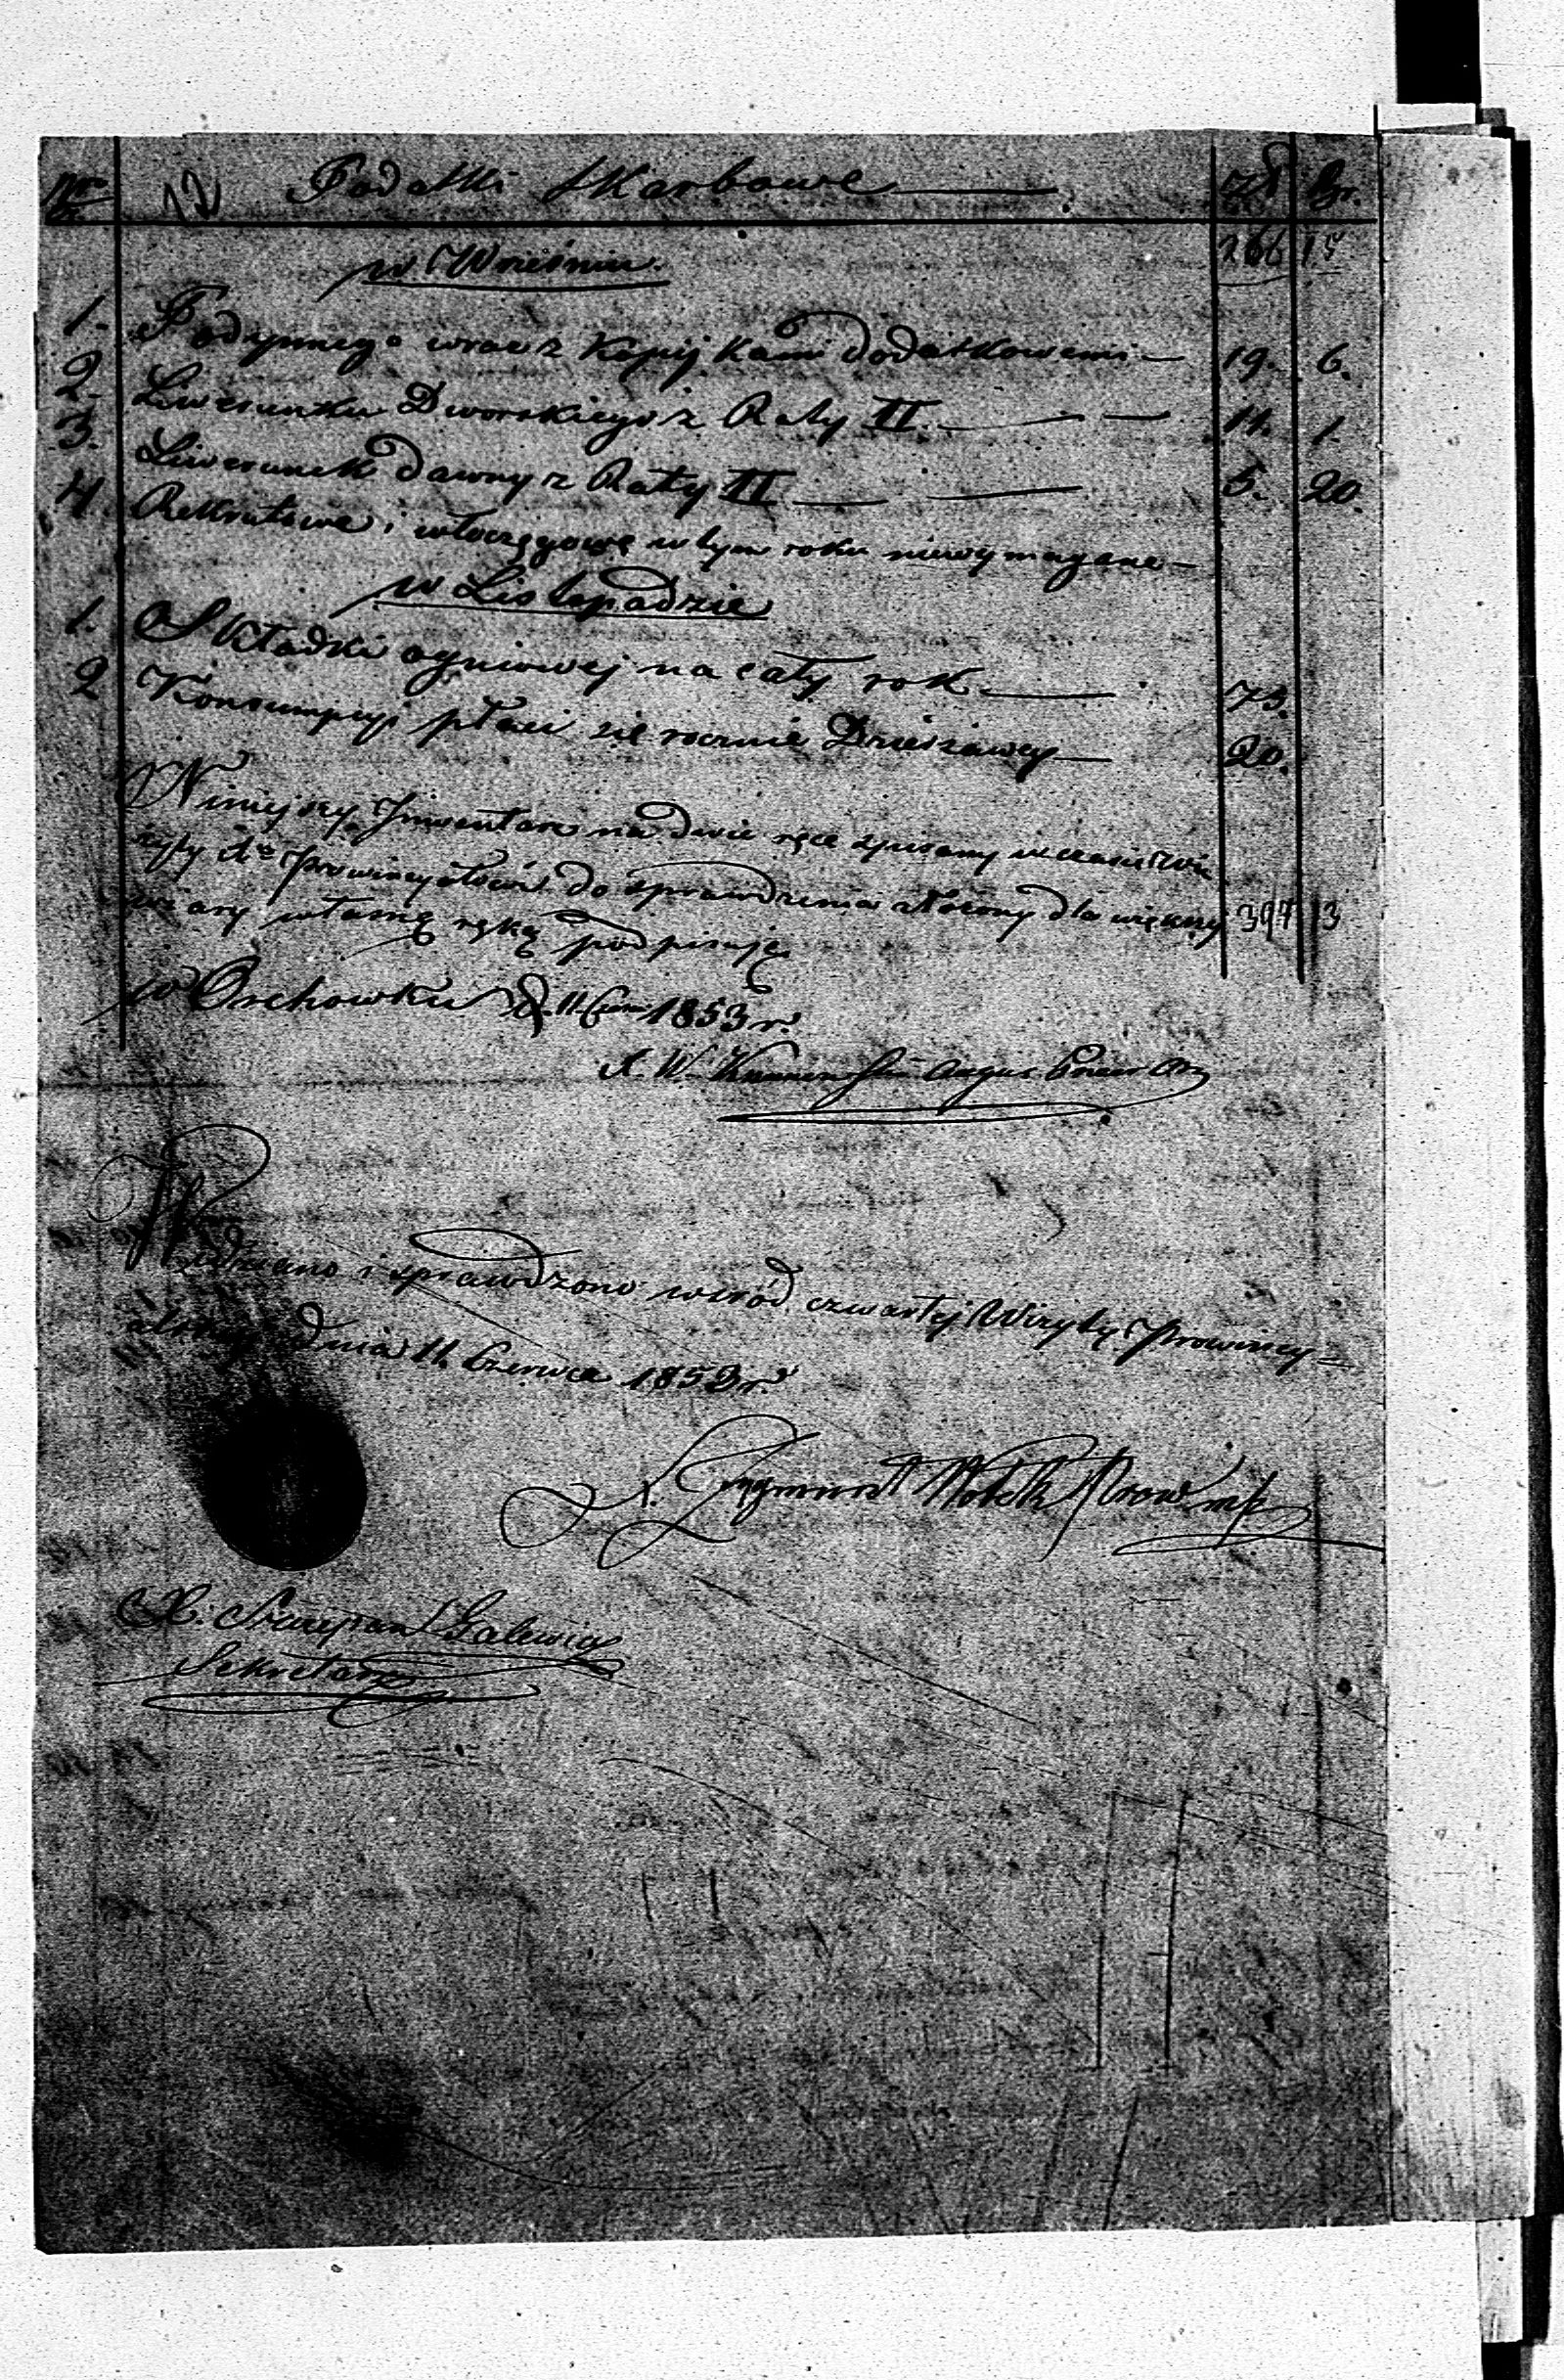 Nro 12 Podatki Skarbowe Zł Gr.
w Wrześniu. 266 15
1. Podymnego wraz z Kopijkami dodatkowemi 19. 6.
2. Liwerunku Dworskiego z Raty II. 14. 1.
3. Liwerunek dawny z Raty II 5. 20.
4. Rekrutowe i włóczęgowe w tym roku niewymagane
w Listopadzie
1. Składki ogniowej na cały rok 73.
2 Konsumpcyi płaci się rocznie Dzierżawcy 20.
Niniejszy Inwentarz na dwie ręce spisany w czasie Wi
zyty Prowincyalskiéj do sprawdzenia złożony dla większéj 397 13
wiary własną ręką podpisuję
w Orchówku d. 11 1853 r.
X. W.
Widziano i sprawdzono wśród czwartéj Wizyty Prowincy-
alskiej dnia 11. Czerwca 1853 r.
X. Zygmunt Prow. mp
X. Szczepan Galewicz
Sekretarz